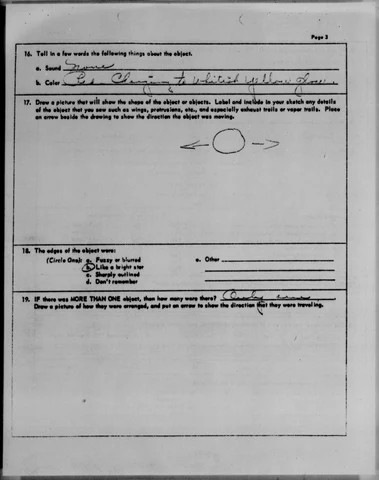 Page 3
16. Tell in a few words the following things about the object.
a. Sound None
b. Color Red Changing to Whitish Yellow Glow.
17. Draw a picture that will show the shape of the object or objects. Label and include in your sketch any details
of the object that you saw such as wings, protrusions, etc., and especially exhaust trails or vapor trails. Place
an arrow beside the drawing to show the direction the object was moving.
18. The edges of the object were:
(Circle One): a. Fuzzy or blurred e. Other
b. Like a bright star
c. Sharply outlined
d. Don't remember
19. IF there was MORE THAN ONE object, then how many were there? Only one
Draw a picture of how they were arranged, and put an arrow to show the direction that they were traveling.